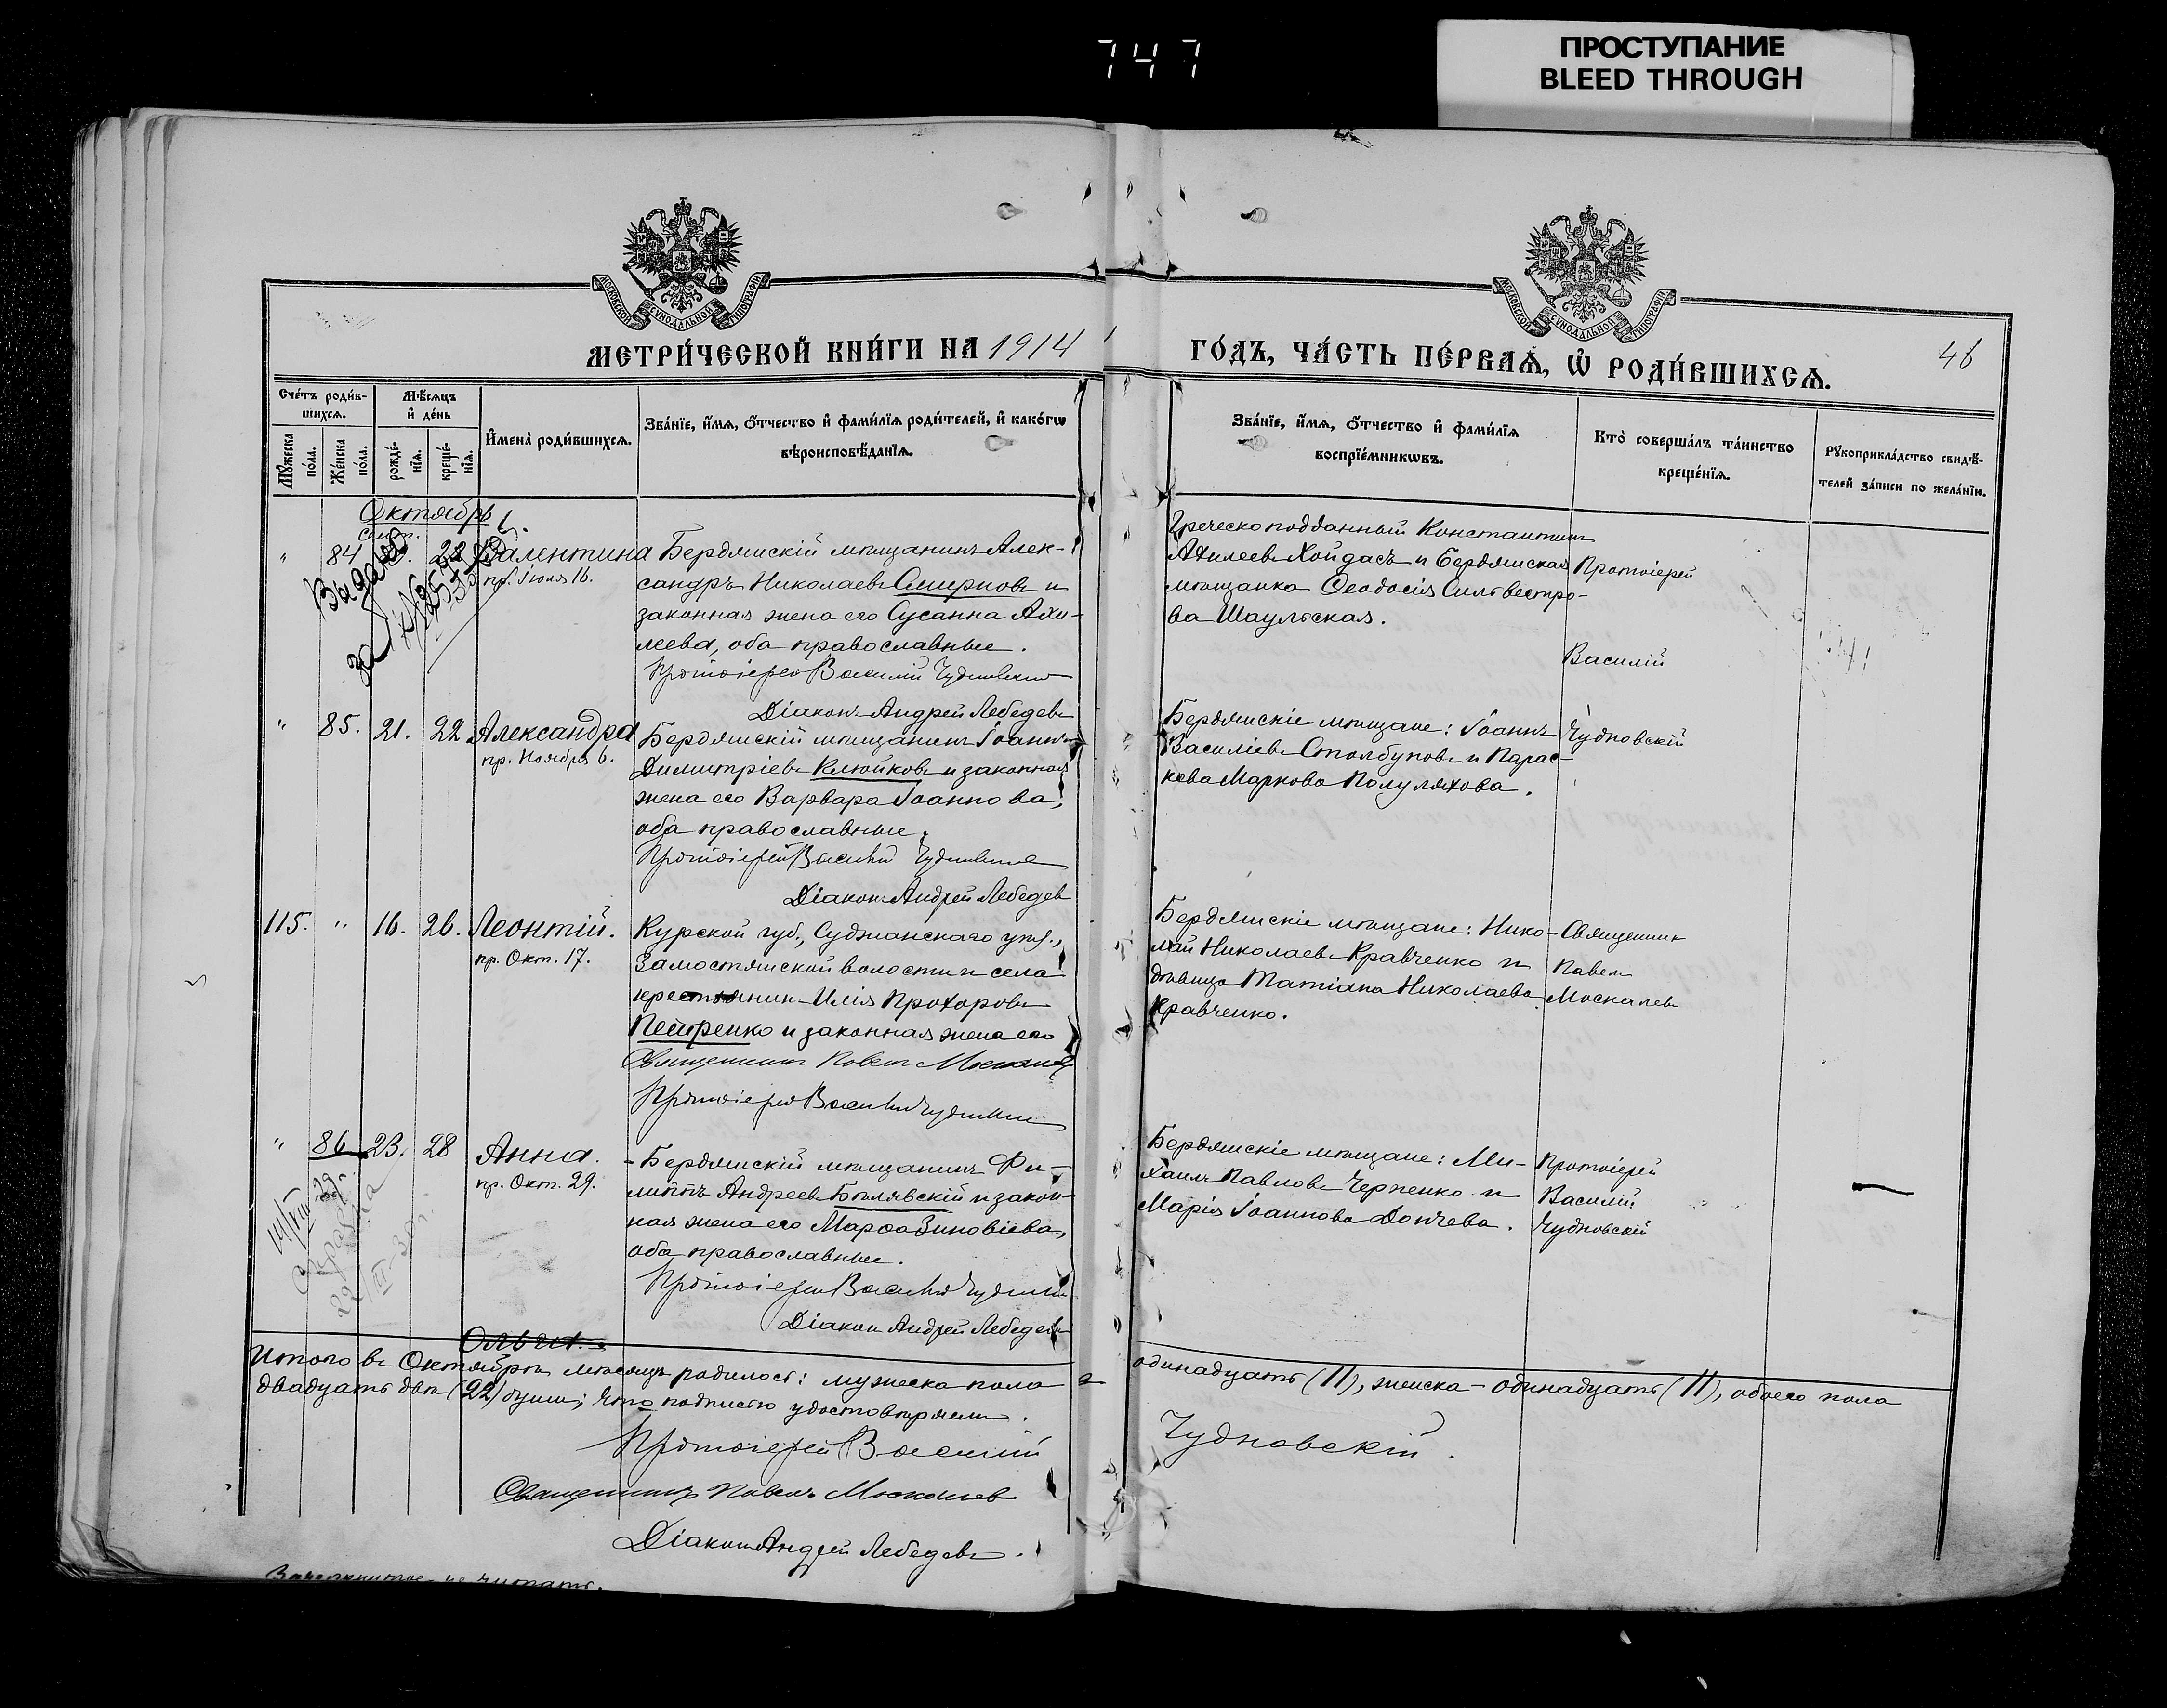 747
ПРОСТУПАНИЕ
BLEED THROUGH
МОСКОВСКОЙ СѴНОДАЛЬНОЙ ТИПОГРАФІИ
МОСКОВСКОЙ СѴНОДАЛЬНОЙ ТИПОГРАФІИ
МЕТРИ́ЧЕСКОЙ КНИ́ГИ НА 1914
ГО́ДЪ, ЧА́СТЬ ПЕ́РВАѦ, Ѡ҆ РОДИ́ВШИХСѦ.
46
Сче́тъ роди́в-
шихсѧ.
Мѹ́жеска по́ла.
Же́нска по́ла.
Мѣ́сѧцъ
и҆ де́нь
рожде́-
нїѧ.
креще́-
нїѧ.
И҆мена̀ роди́вшихсѧ.
Зва́нїе, и҆́мѧ, ѻ҆́тчество и҆ фами́лїѧ роди́телей, и҆ како́гѡ
вѣроисповѣ́данїѧ.
Зва́нїе, и҆́мѧ, ѻ҆́тчество и҆ фами́лїѧ
воспрїе́мникѡвъ.
Кто̀ соверша́лъ та́инство
креще́нїѧ.
Рѹкоприкла́дство свидѣ́-
телей за́писи по жела́нїю.
Октябрь
Сент.
" 84 22 Валентина
пр. Іюля 16.
Бердянскій мѣщанинъ Алек-
сандръ Николаевъ Смирновъ и
законная жена его Сусанна Ахи-
леева, оба православные.
Протоіерей Василій Чудновскій
Діаконъ Андрей Лебедевъ
Греческоподданный Константинъ
Ахилеевъ Хойдасъ и Бердянская
мѣщанка Ѳеодосія Сильвестро-
ва Шаульская.
Протоіерей
Василій
Чудновскій
Выдана
" 85. 21. 22 Александра
пр. Ноября 6.
Бердянскій мѣщанинъ Іоаннъ
Димитріевъ Клюйковъ и законная
жена его Варвара Іоаннова,
оба православные.
Протоіерей Василій Чудновскій
Діаконъ Андрей Лебедевъ
Бердянскіе мѣщане: Іоаннъ
Василіевъ Столбуновъ и Парас-
кева Маркова Полуляхова.
115. " 16. 26. Леонтій.
пр. Окт. 17.
Курской губ., Суджанскаго уѣз.,
Замостянской волости и села
крестьянинъ Илія Прохоровъ
Петренко и законная жена его
Священникъ Павелъ Москалевъ
Протоіерей Василій Чудновскій
Бердянскіе мѣщане: Нико-
лай Николаевъ Кравченко и
дѣвица Татіана Николаева
Кравченко.
Священникъ
Павелъ
Москалевъ
" 86 23. 28 Анна.
пр. Окт. 29.
Бердянскій мѣщанинъ Фи-
липпъ Андреевъ Бѣлявскій и закон-
ная жена его Марѳа Зиновіева,
оба православные.
Протоіерей Василій Чудновскій
Діаконъ Андрей Лебедевъ
Бердянскіе мѣщане: Ми-
хаилъ Павловъ Черненко и
Марія Іоаннова Дончева.
Протоіерей
Василій
Чудновскій
Справка
Ольга.
Итого въ Октябрѣ мѣсяцѣ родилось: мужеска пола одинадцать (11), женска - одинадцать (11), обоего пола
двадцать два (22) души; что подписью удостовѣряемъ.
Протоіерей Василій Чудновскій.
Священникъ Павелъ Москалевъ
Діаконъ Андрей Лебедевъ.
Зачеркнутое не читать.